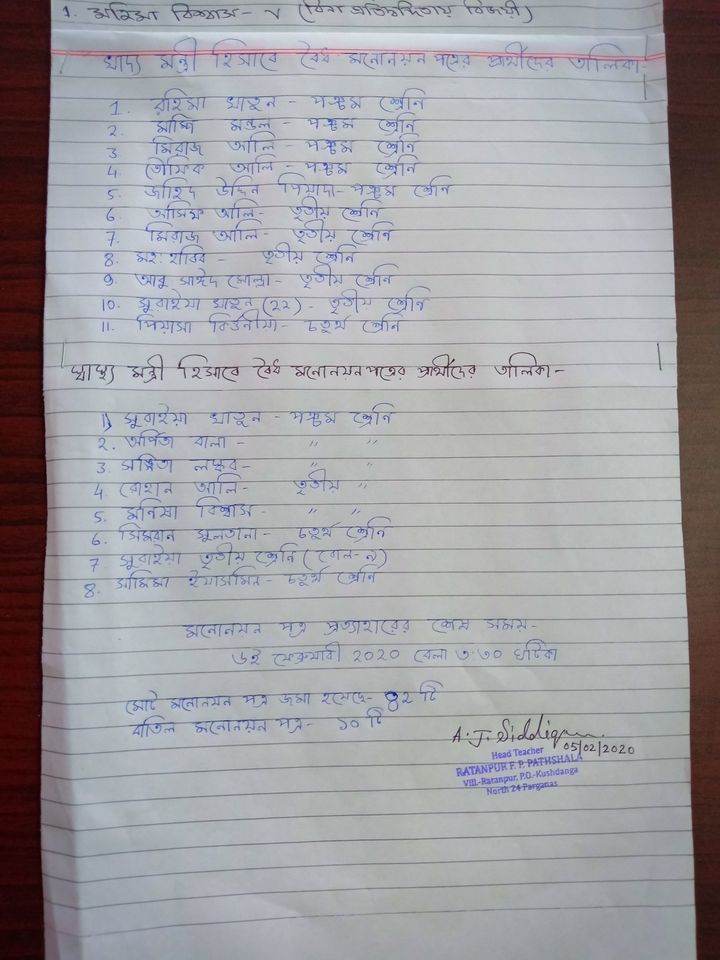 1. মহিমা বিশ্বাস- V (বিনা প্রতিদ্বন্দ্বিতায় বিজয়ী)
খাদ্য মন্ত্রী হিসাবে বৈধ মনোনয়ন পত্রের প্রার্থীদের তালিকা-
1. রহিমা খাতুন - পঞ্চম শ্রেনি
2. মাম্পি মন্ডল - পঞ্চম শ্রেনি
3 মিরাজ আলি - পঞ্চম শ্রেনি
4. তৌফিক আলি - পঞ্চম শ্রেনি
5. জাহিদ উদ্দিন পিয়াদা- পঞ্চম শ্রেনি
6. আসিফ আলি- তৃতীয় শ্রেনি
7. মিরাজ আলি - তৃতীয় শ্রেনি
8. মহঃ হাবিব - তৃতীয় শ্রেনি
9. আবু সাঈদ মোল্লা- তৃতীয় শ্রেনি
10. সুরাইয়া খাতুন (২২) - তৃতীয় শ্রেনি
11. পিয়াসা কির্তনীয়া- চতুর্থ শ্রেনি
স্বাস্থ্য মন্ত্রী হিসাবে বৈধ মনোনয়ন পত্রের প্রার্থীদের তালিকা-
1) সুরাইয়া খাতুন - পঞ্চম শ্রেনি
2. অর্পিতা বালা - " "
3. সঞ্চিতা লস্কর- " "
4. রোহান আলি- তৃতীয় "
5. মনিষা বিশ্বাস- " "
6. সিমরান সুলতানা- চতুর্থ শ্রেনি
7 সুরাইয়া তৃতীয় শ্রেনি (রোল-৯)
8. সামিমা ইয়াসমিন- চতুর্থ শ্রেনি
মনোনয়ন পত্র প্রত্যাহারের শেষ সময়-
৬ই ফেব্রুয়ারী 2020 বেলা ৩·৩০ ঘটিকা
মোট মনোনয়ন পত্র জমা হয়েছে- ৪২ টি
বাতিল মনোনয়ন পত্র- ১০ টি
A. J. Siddiqui
05/02/2020
Head Teacher
RATANPUR F. P. PATHSHALA
Vill.-Ratanpur, P.O.-Kushdanga
North 24 Parganas